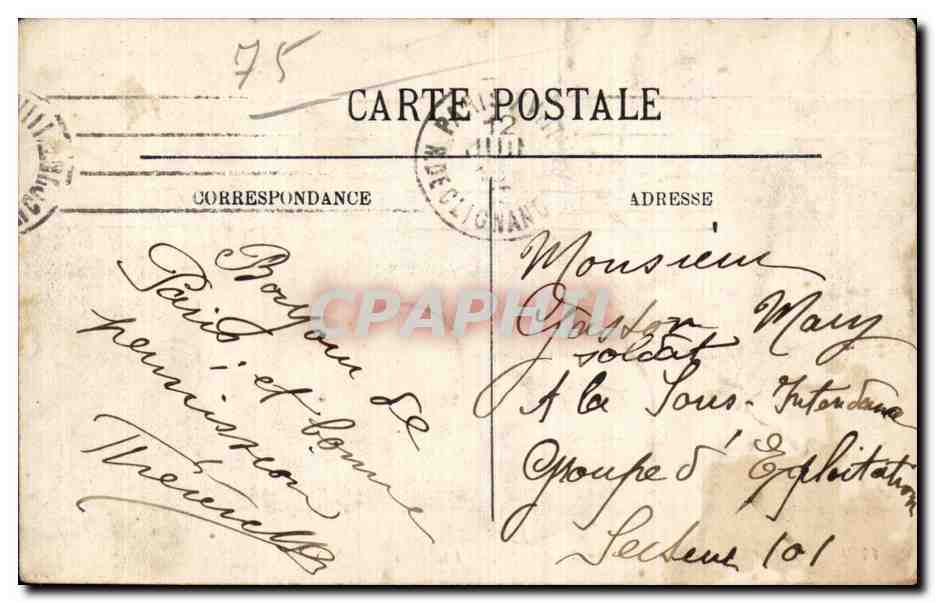 75
CARTE POSTALE
CORRESPONDANCE
ADRESSE
12
R. DE CLIGNANC
Bonjour de
Paris et bonne
permission
CPAPHIL
Monsieur
Gaston Mary
soldat
A la Sous-Intendance
Groupe d'Exploitation
Secteur 101